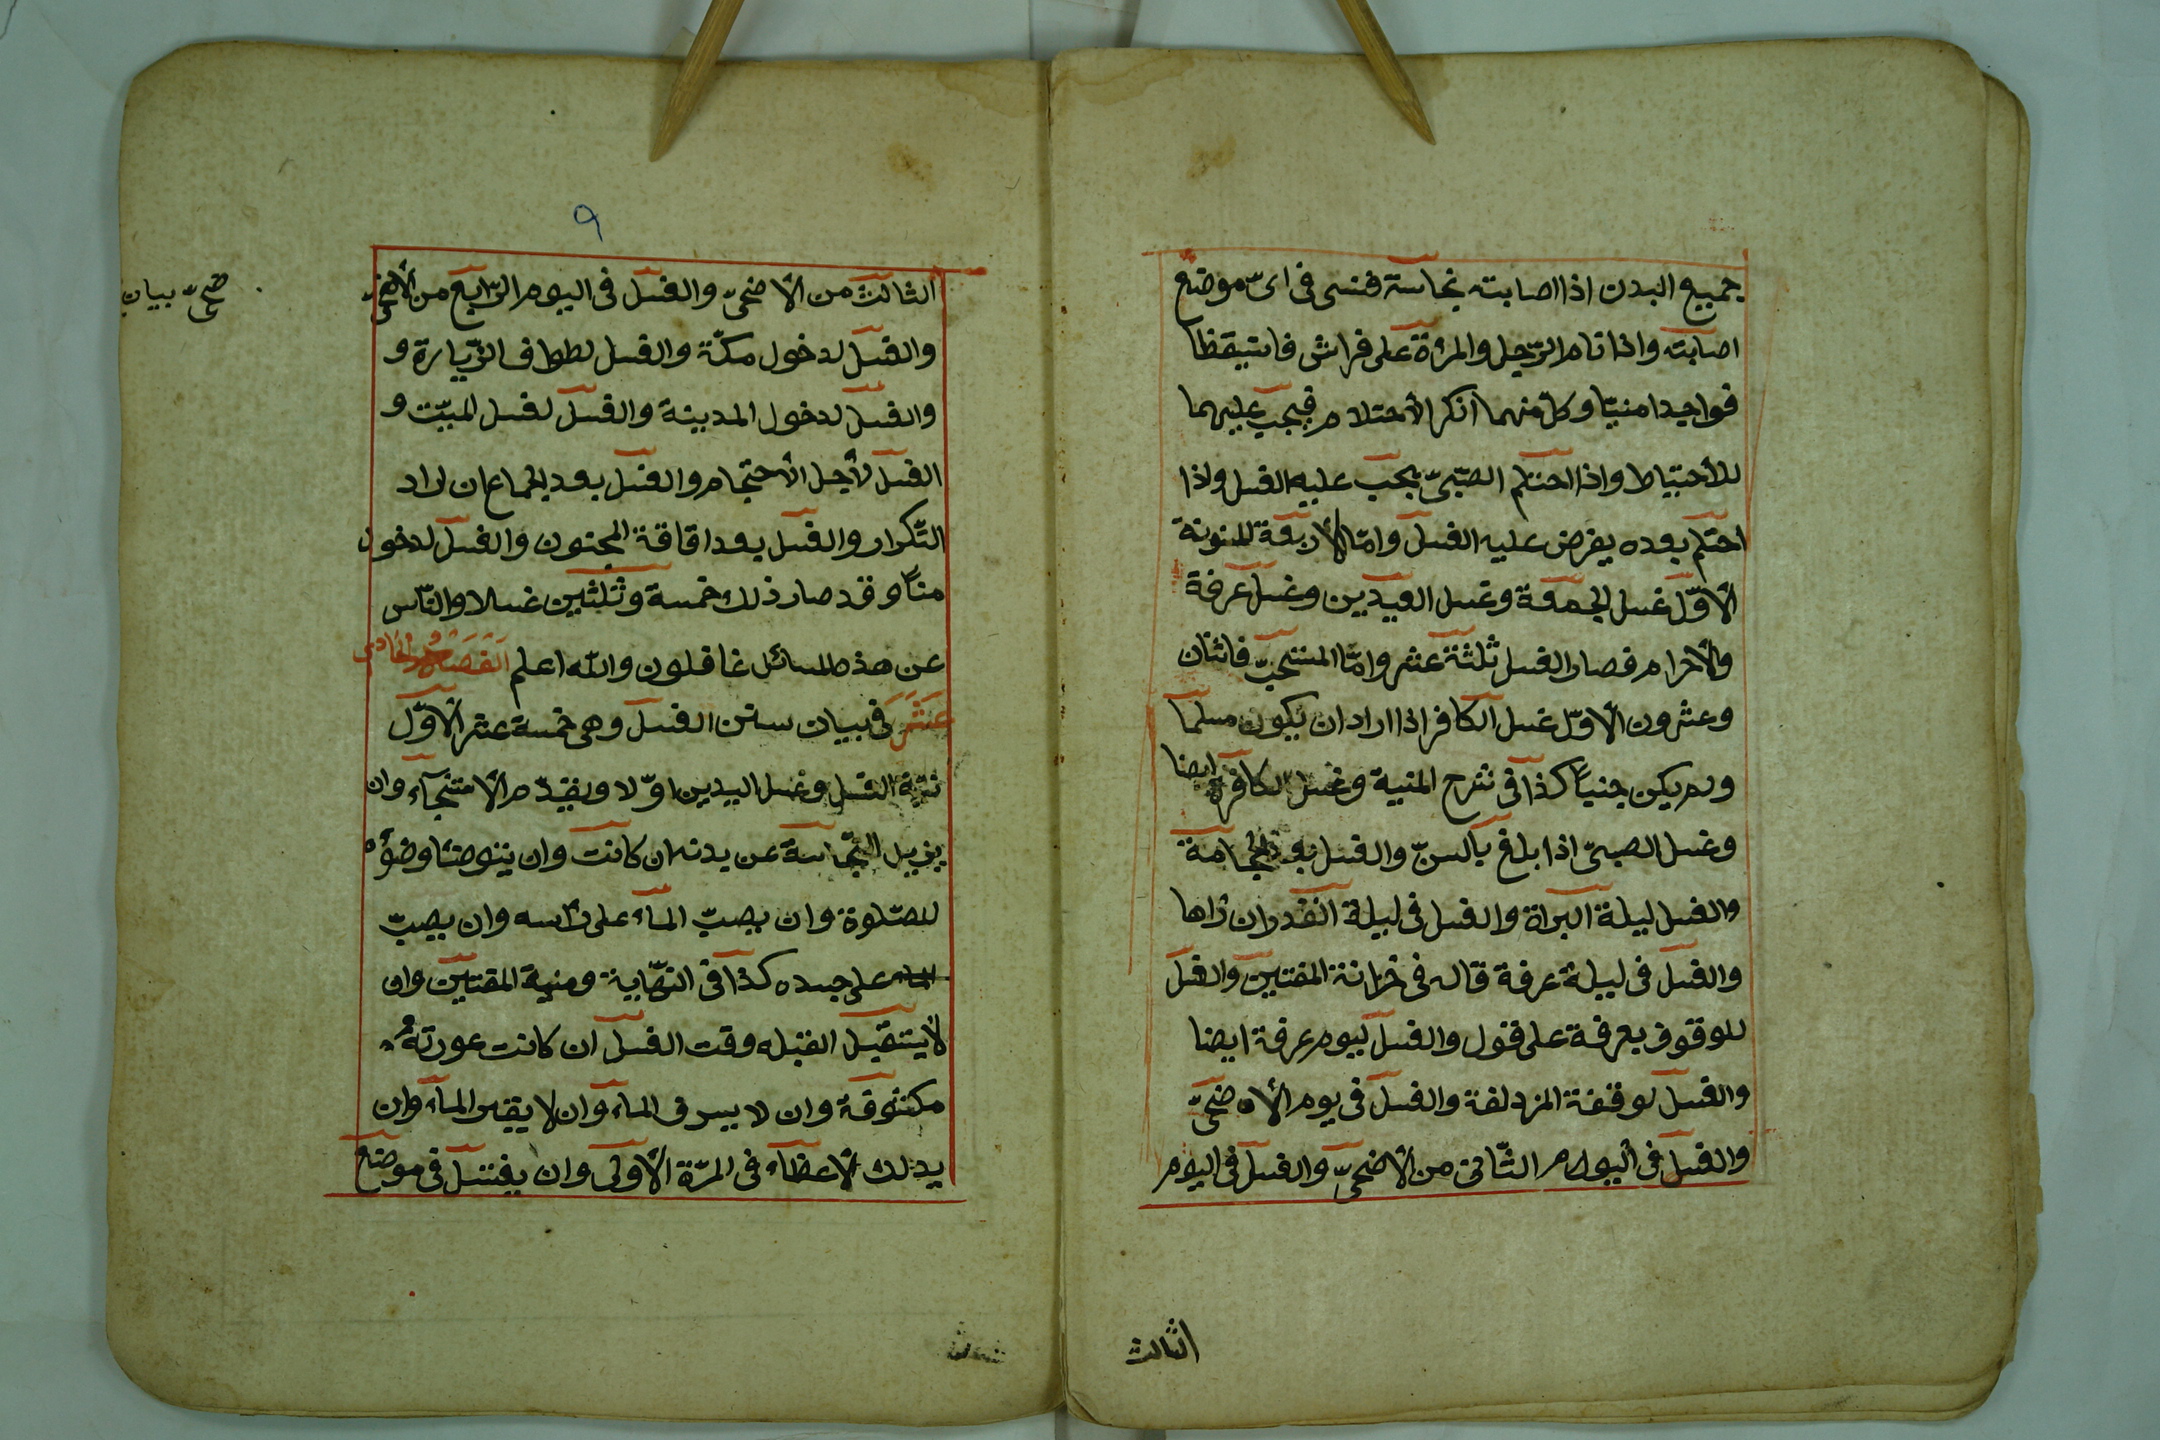 جميع البدن اذا اصابته نجاسة فنسى فى اىّ موضع
اصابته واذا نام الرّجل والمرٔة على فراش فاستيقظا
فواجدا منيّا وكل منهما انكر الأحتلام فيجب عليهما
للأحتياط واذا احتلم الصّبىّ يجب عليه الغسل واذا
احتلم بعده يفرض عليه الغسل وامّا الأربعة المسنونة
الأوّل غسل الجمعة وغسل العيدين وغسل عرفة
والأحرام فصار الغسل ثلثة عشر وامّا المستحبّ فاثنان
وعشرون الأوّل غسل الكافر اذا اراد ان يكون مسلما
ولم يكن جنباً كذا فى شرح المنية وغسل الكافرة ايضا
وغسل الصبىّ اذا بلغ بالسنّ والغسل بعد الحجامة
والغسل ليلة البراة والغسل فى ليلة القدر ان رٰاها
والغسل فى ليلة عرفة قاله فى خزانة المفتين والغسل
للوقوف بعرفة على قول والغسل ليوم عرفة ايضا
والغسل لوقفة المزدلفة والغسل فى يوم الأضحىّ
والغسل فى اليوم الثّانى من الأضحىّ والغسل فى اليوم
الثالث
٩
الثالث من الأضحىّ والغسل فى اليوم الرّابع من الأضحىّ
والغسل لدخول مكّة والغسل لطواف الزّيارة و
والغسل لدخول المدينة والغسل لغسل الميّت و
الغسل لأجل الأحتجام والغسل بعد الجماع ان اراد
التّكرار والغسل بعد افاقة المجنون والغسل لدخول
مناً وقد صار ذلك خمسة وثلثين غسلا والنّاس
عن هذه المسائل غافلون والله اعلم الفصل الحادى
عشر فى بيان سنن الغسل وهى خمسة عشر الأوّل
نيّة الغسل وغسل اليدين اوّلا ويقدّم الأستنجآء وان
يزيل النّجاسة عن بدنه ان كانت وان يتوضّأ وضؤه
للصّلوة وان يصبّ المآء على رأسه وان يصبّ
المآء على جسده كذا فى النّهاية ومنية المفتين وان
لا يستقبل القبله وقت الغسل ان كانت عورته
مكشوفة وان لا يسرف المآء وان لا يقتر المآء وان
يدلك الأعظآء فى المرّة الأولى وان يغتسل فى موضع
ضحىّ بيان